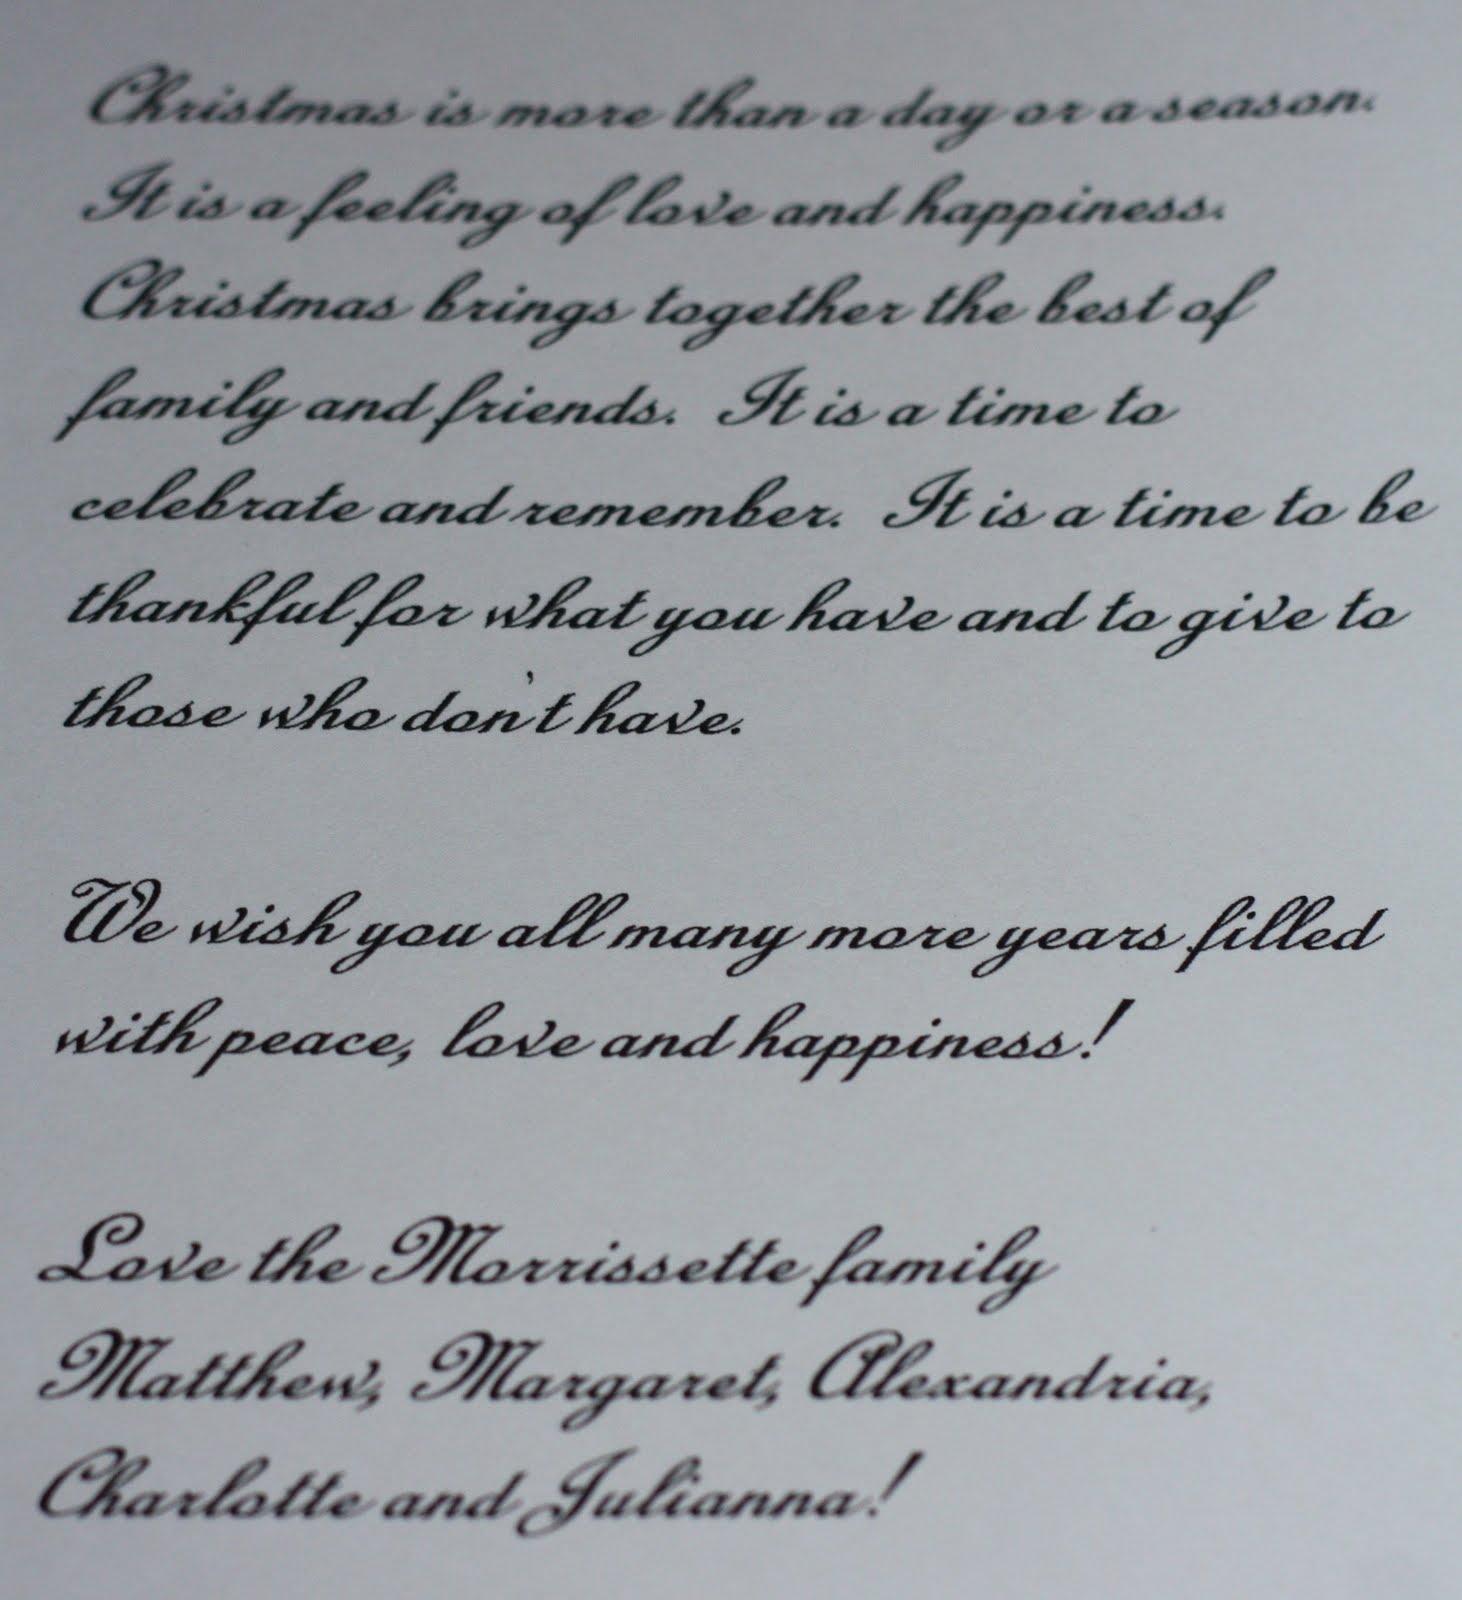 Christmas is more than a day or a season.
It is a feeling of love and happiness.
Christmas brings together the best of
family and friends. It is a time to
celebrate and remember. It is a time to be
thankful for what you have and to give to
those who don't have.
We wish you all many more years filled
with peace, love and happiness!
Love the Morrissette family
Matthew, Margaret, Alexandria,
Charlotte and Julianna!